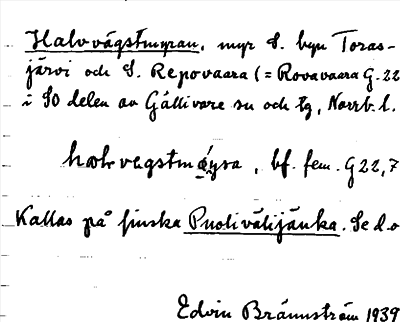 Halvvägstmyran, myr S. byn Toras-
järvi och S. Repovaara (= Rovavaara G. 22
i SO delen av Gällivare sn och tg, Norrb. l.
bf. fem. G 22, 7
Kallas på finska Puolivälijänkä. Se d.o
Edvin Brännström 1939